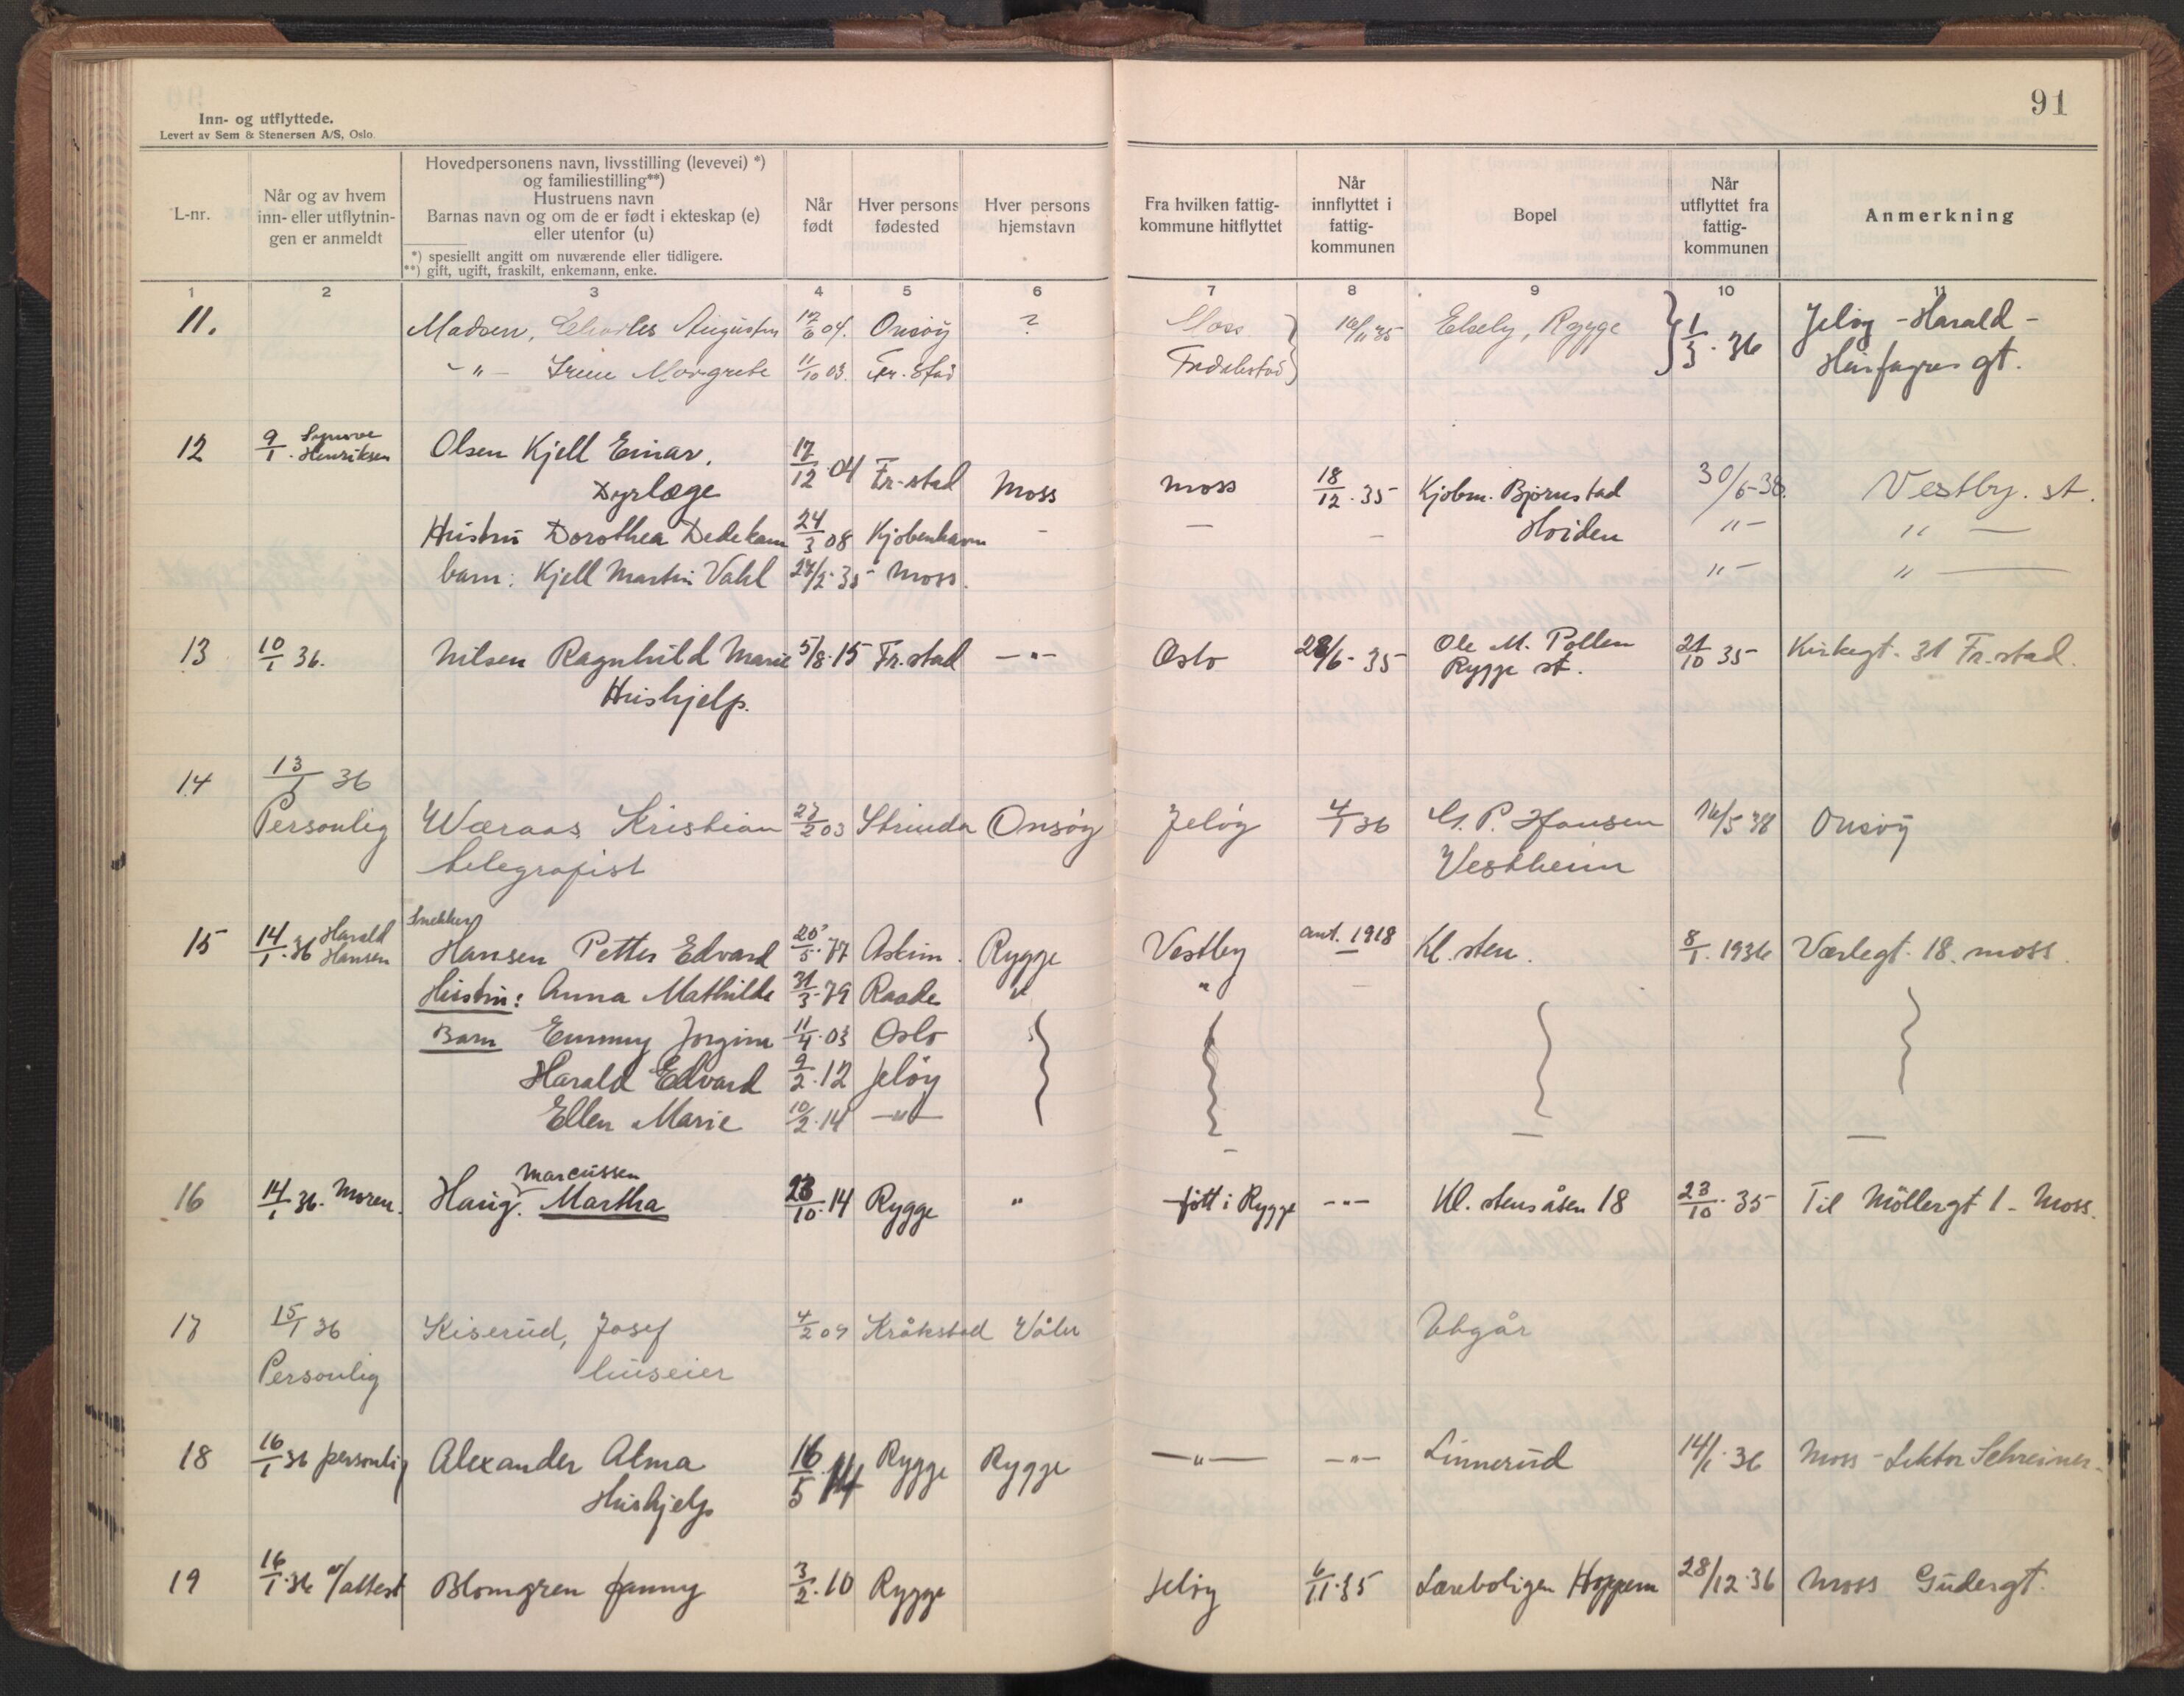 91
Inn- og utflyttede.
Levert av Sem & Stenersen A/S, Oslo.
L-nr.
Når og av hvem
inn- eller utflytnin-
gen er anmeldt
Hovedpersonens navn, livsstilling (levevei) *)
og familiestilling**)
Hustruens navn
Barnas navn og om de er født i ekteskap (e)
eller utenfor (u)
*) spesielt angitt om nuværende eller tidligere.
**) gift, ugift, fraskilt, enkemann, enke.
Når
født
Hver persons
fødested
Hver persons
hjemstavn
Fra hvilken fattig-
kommune hitflyttet
Når
innflyttet i
fattig-
kommunen
Bopel
Når
utflyttet fra
fattig-
kommunen
Anmerkning
1 2 3 4 5 6 7 8 9 10 11
11. Madsen, Charles Augustin 17/6 04. Onsøy ? Moss 16/11 35 Elsely, Rygge 1/3. 36 Jeløy - Harald -
-"- Irene Margrete 11/10 03. Fr. stad Fredrikstad Hårfagres gt.
12 9/1. Synnøve Henriksen Olsen Kjell Einar. 17/12. 04 Fr-stad Moss Moss 18/12. 35 Kjøbm. Bjørnstad 30/6-38. Vestby. st.
Dyrlæge
Hustru Dorothea Dedekam 24/3 08 Kjøbenhavn - — - Høiden "- " —
barn: Kjell Martin Vahl 27/2. 35 Moss. "- " —
13 10/1 36. Nilsen Ragnhild Marie 5/8. 15 Fr. stad —"— Oslo 28/6- 35 Ole M. Pollen 21/10 35 Kirkegt. 31 Fr. stad.
Hushjelp. Rygge st.
14 13/1 36
Personlig Wæraas, Kristian 27/2 03 Strinda Onsøy Jeløy 4/1 36 G. P. Hansen 16/5 38 Onsøy
telegrafist Vestheim
Snekker
15 14/1. 36 Harald Hansen Hansen Petter Edvard 20/5. 77 Askim. Rygge Vestby ant. 1918 Kl. sten. 8/1. 1936 Værlegt. 18. Moss.
Hustru: Anna Mathilde 31/3. 79 Raade " "
Barn Emmy Jorgine 11/4. 03 Oslo
Harald Edvard 9/2. 12 Jeløy
Ellen Marie 10/2. 14 —"—
Marcussen
16 14/1 36. Moren. Haug. Martha 23/10. 14 Rygge " født i Rygge -"- Kl. stensåsen 18 23/10. 35 Til Möllergt 1 - Moss.
17 15/1 36 Kiserud, Josef 4/2 09 Kråkstad Våler Utgår
Personlig huseier
18 16/1 36 personlig Alexander Alma 16/5 14 Rygge Rygge —"— -"- Linnerud 14/1. 36 Moss - Lektor Schreiner.
Hushjelp
19 16/1. 36 v/attest Blomgren Fanny 3/2. 10 Rygge Jeløy 6/11. 35 Læreboligen Hoppern 28/12. 36 Moss Gudergt.